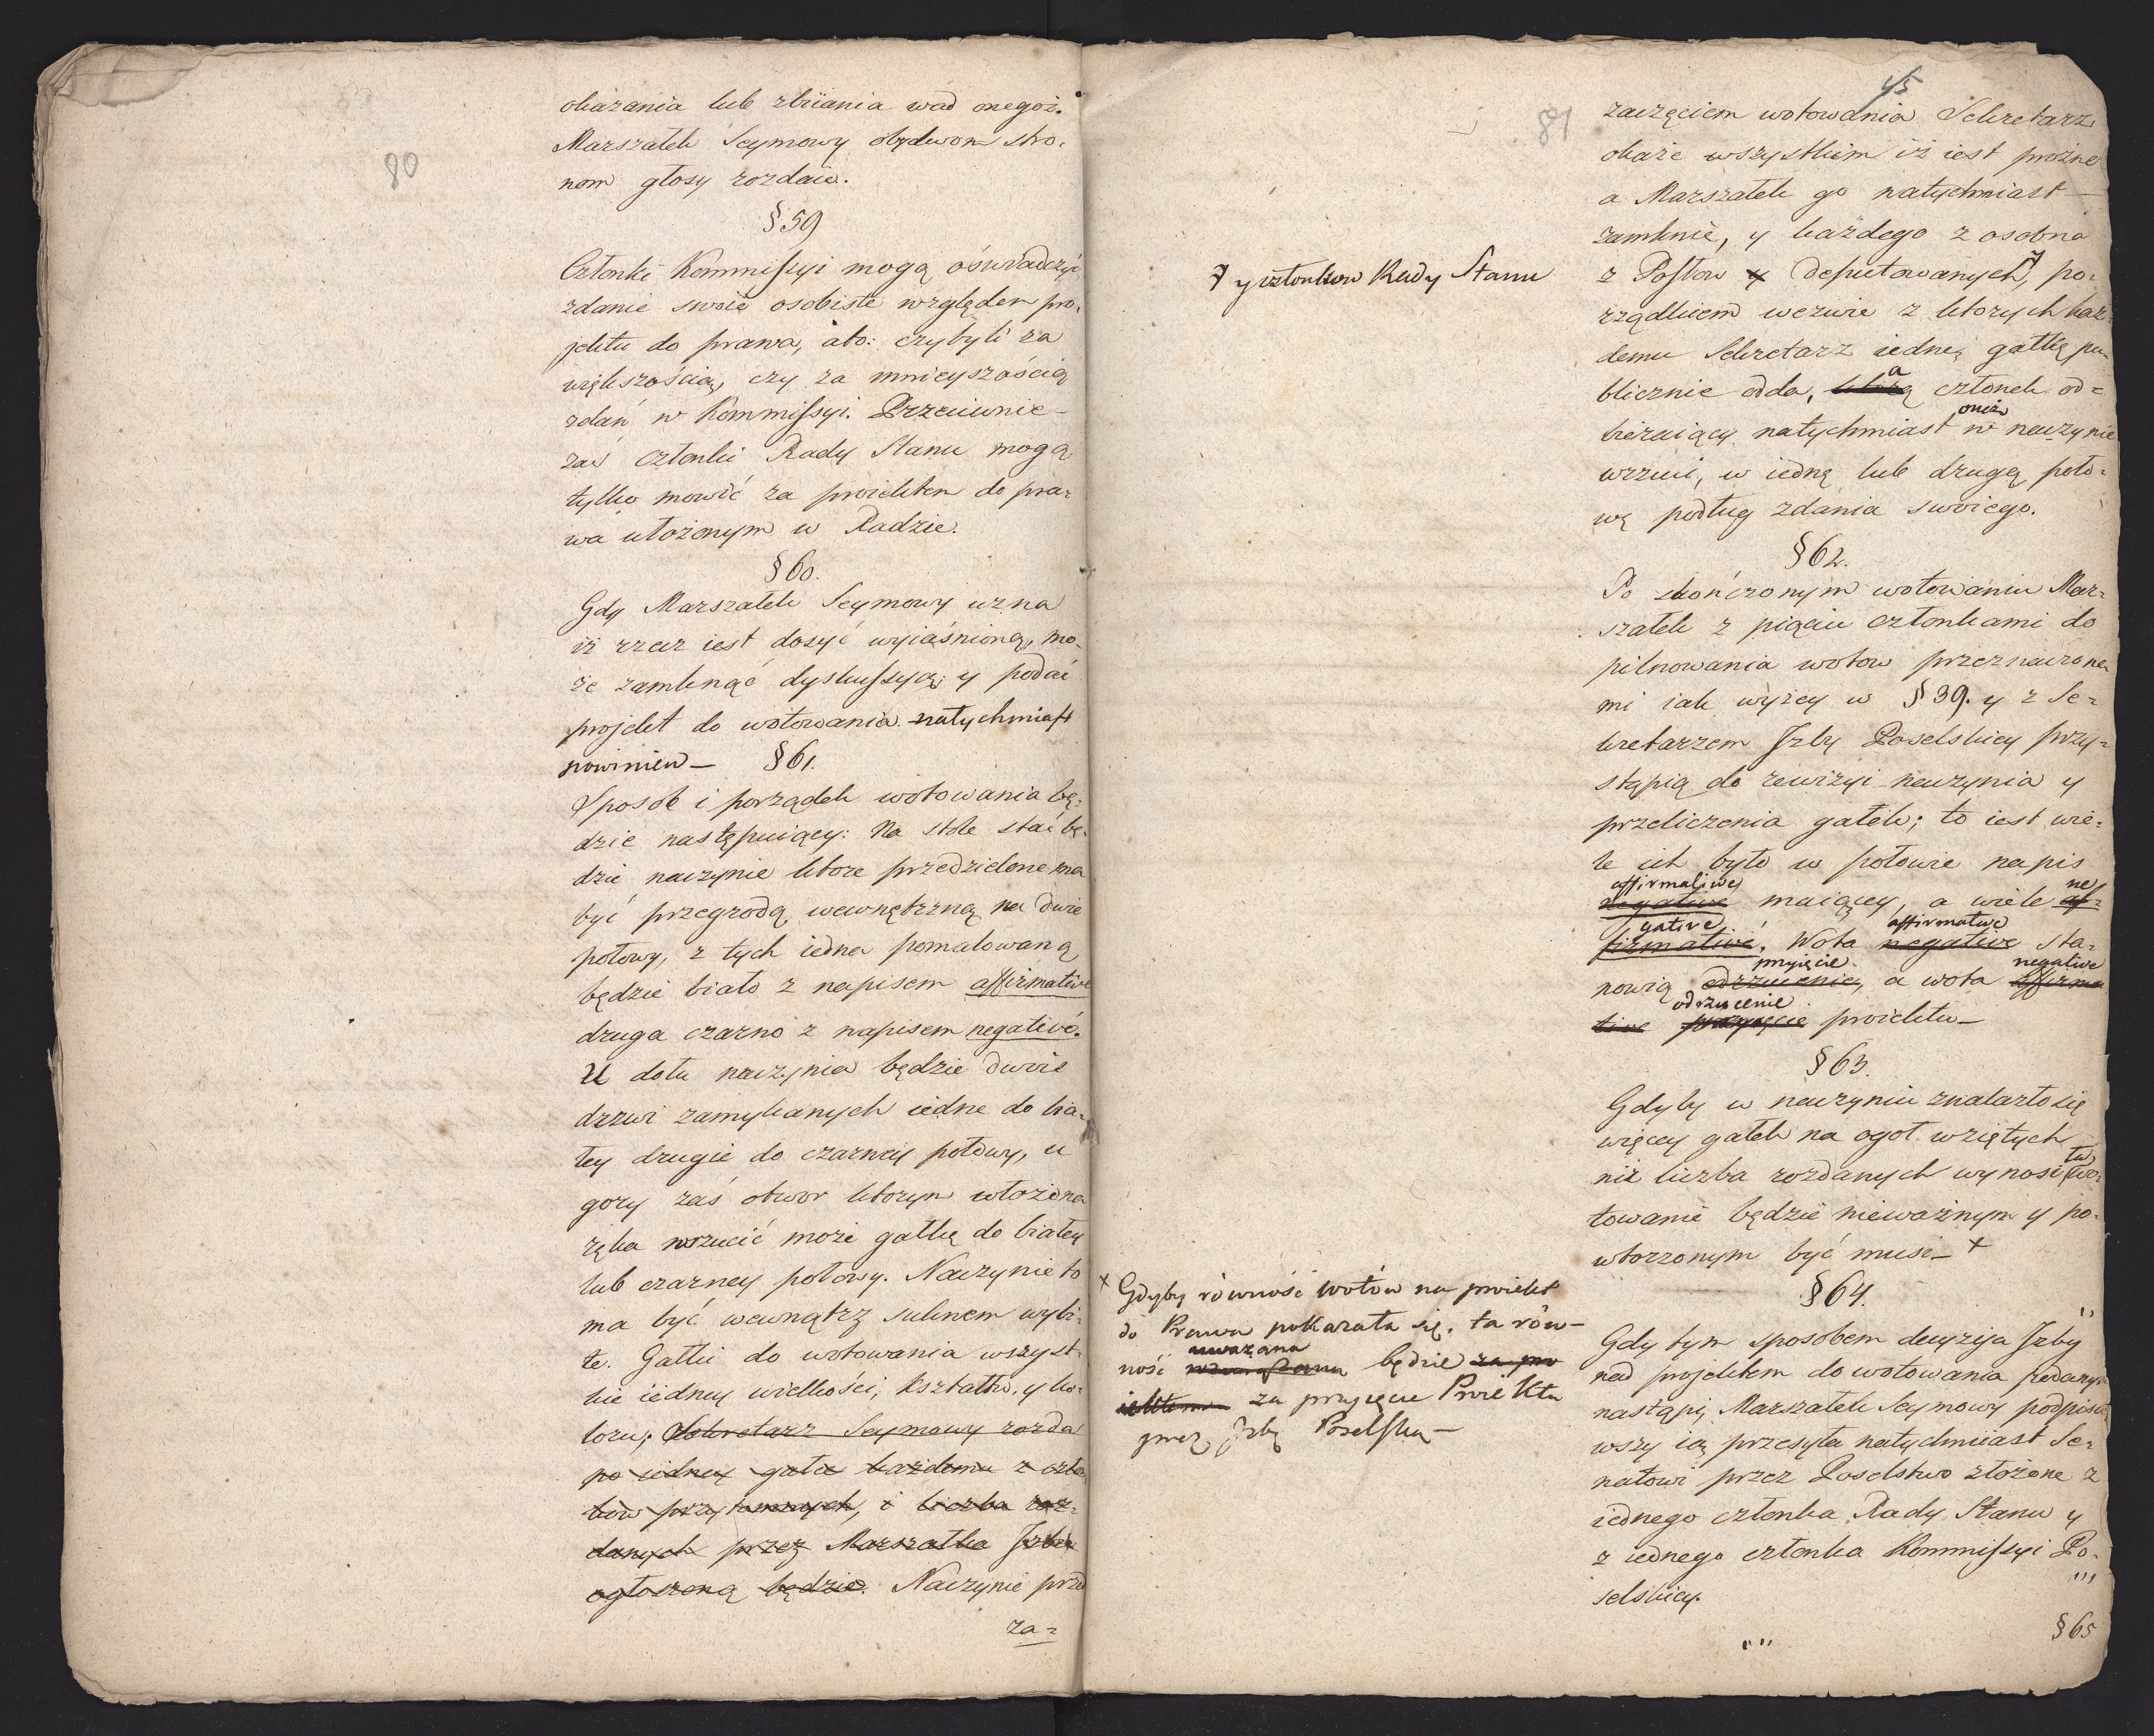 80
okazania lub zbiiania wad onegoż.
Marszałek Seymowy obydwom stro-
nom głosy rozdaie.
§ 59
Członki Kommissyi mogą óświadczyć
zdanie swoie osobiste względem pro-
jektu do prawa, abo: czy byli za
większością, czy za mnieyszością
zdań w Kommissyi. Przeciwnie
zaś członki Rady Stanu mogą
tylko mowić za proiektem do pra-
wa ułożonym w Radzie.
§ 60.
Gdy Marszałek Seymowy uzna
iż rzecz iest dosyć wyiaśnioną, mo-
że zamknąć dyskussyą; y podać
projekt do wotowania natychmiast
powinien —
§ 61.
Sposob i porządek wotowania bę-
dzie następuiący: Na stole stać bę-
dzie naczynie ktore przedzielone ma
być przegrodą wewnętrzną na dwie
połowy, z tych iedna pomalowaną
będzie biało z napisem affirmative
druga czarno z napisem negativé.
U dołu naczynia będzie dwoie
drzwi zamykanych iedne do bia-
łey drugie do czarney połowy, u
gory zaś otwor ktorym włożona
ręka wrzucić może gałkę do białey
lub czarney połowy. Naczynie to
ma być wewnątrz suknem wybi-
te. Gałki do wotowania wszyst-
kie iedney wielkości, kształtu, y ko-
loru; Sekretarz Seymowy rozda
po iedney gałce każdemu z człon-
kow przytomnych, i liczba roz-
danych przez Marszałka Izbie
ogłoszoną będzie. Naczynie przed
za-
45
81
zaczęciem wotowania Sekretarz
okaże wszystkim iż iest prożne
a Marszałek go natychmiast
zamknie, y każdego z osobna
z Posłow y deputowanych, po-
rządkiem wezwie z ktorych każ-
demu Sekretarz iednę gałkę pu-
blicznie odda, ktorą a członek od-
bieraiący natychmiast w naczynie
oneż
wrzuci, w iednę lub drugą poło-
wę podług zdania swoiego.
† y członkow Rady Stanu
§ 62.
Po skończonym wotowaniu Mar-
szałek z pięciu członkami do
pilnowania wotow przeznaczone-
mi iak wyżey w § 39. y z Se-
kretarzem Izby Poselskiey przy-
stąpią do rewizyi naczynia y
przeliczenia gałek; to iest wie-
le ich było w połowie napis
affirmative ne
negative maiącey, a wiele af-
gative affirmative
firmativé. Wota negative sta-
przyięcie negative
nowią odrzucenie, a wota affirma
odrzucenie
tive przyięcie proiektu —
§ 63.
Gdyby w naczyniu znalazło się
więcey gałek na ogoł wziętych
niż liczba rozdanych wynosi to wo-
towanie będzie nieważnym y po-
wtorzonym być musi — +
+ Gdyby równość wotów na proiekt
do Prawa pokazała się, ta rów-
uważana
ność będzie za pro
iektem za przyięcie Proiektu
przez Izbę Poselską —
§ 64.
Gdy tym sposobem decyzija Izby
nad projektem do wotowania podanym
nastąpi, Marszałek Seymowy podpisa-
wszy ią przesyła natychmiast Se-
natowi przez Poselstwo złożone z
iednego członka Rady Stanu y
z iednego członka Kommissyi Po-
selskiey.
§ 65